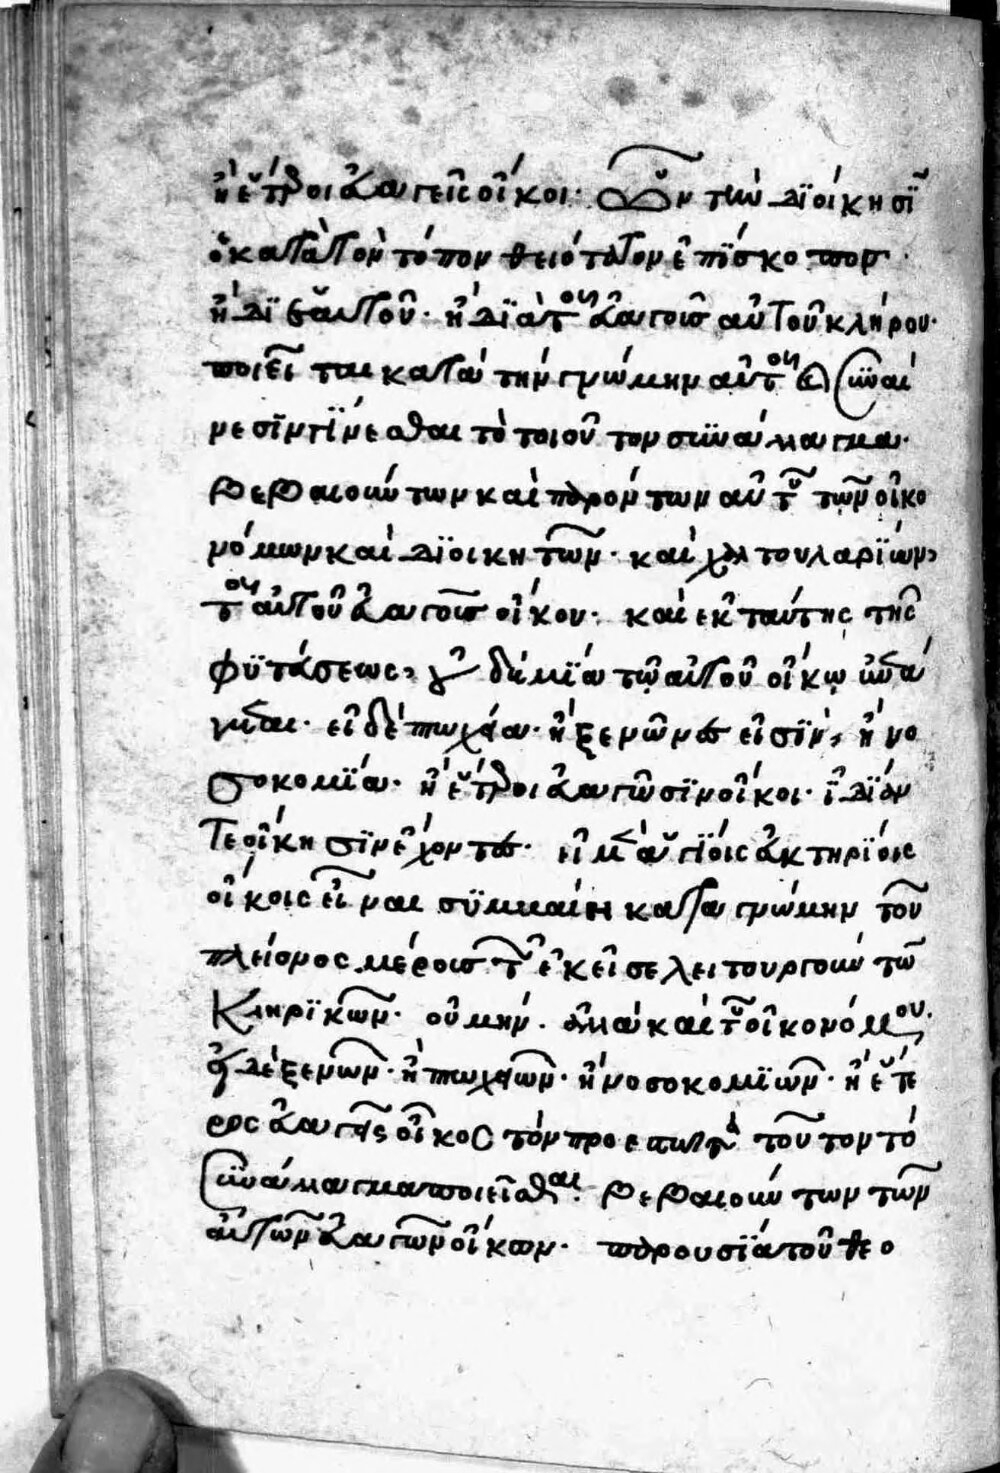 ἢ ἕτεροι εὐαγεῖς οἶκοι· ὧν τὴν διοίκησιν
ὁ κατὰ τὸν τόπον θειότατον ἐπίσκοπον
ἢ δι' ἑαυτοῦ· ἢ διὰ τοῦ εὐαγοῦς αὐτοῦ κλήρου·
ποιεῖται κατὰ τὴν γνώμην αὐτοῦ
γίνεσθαι τὸ τοιοῦτον συνάλλαγμα·
βεβαιούντων καὶ παρόντων αὐτῶν τῶν οἰκο
νόμων καὶ διοικητῶν· καὶ χαρτουλαρίων,
τοῦ αὐτοῦ εὐαγοῦς οἴκου· καὶ ἐκ ταύτης τῆς
φυτάσεως, ζημία τῷ αὐτοῦ οἴκῳ
γίνεται· εἰ δὲ πτωχεῖα· ἢ ξενῶνες εἰσὶν, ἢ νο
σοκομία· ἢ ἕτεροι εὐαγῶσιν οἶκοι· ἰδίαν
τε οἴκησιν ἔχοντες· εἰ μὲν ἁγίοις εὐκτηρίοις
οἴκοις εἶναι συμβαίη κατὰ γνώμην τοῦ
πλείονος μέρους τῶν ἐκεῖσε λειτουργούντων
κληρικῶν· οὐ μὴν ἀλλὰ καὶ τοῦ οἰκονόμου·
εἰ δὲ ξενών· ἢ πτωχεῖον· ἢ νοσοκομίων· ἢ ἕτε
ρος εὐαγὴς οἶκος τὸν προεστῶτα τούτον τὸ
συνάλλαγμα ποιεῖσθαι· βεβαιούντων τῶν
αὐτῶν εὐαγῶν οἴκων· παρουσία τοῦ θεο